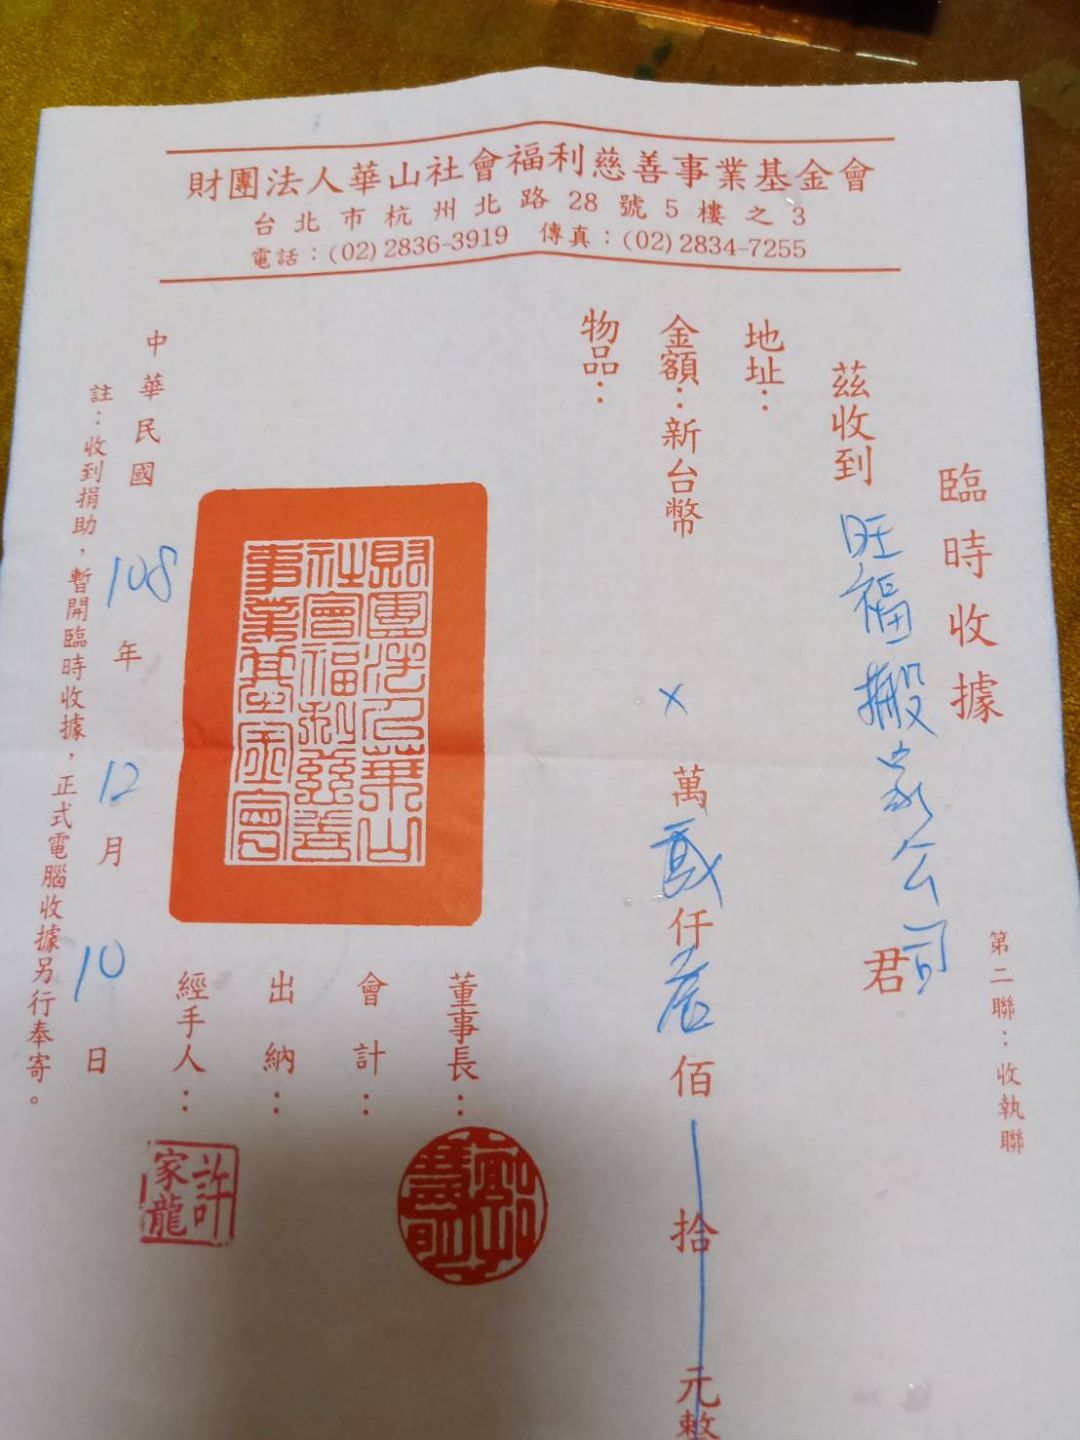 財團法人華山社會福利慈善事業基金會
台北市杭州北路28號5樓之3
電話：(02)2836-3919 傳真：(02)2834-7255
臨時收據
第二聯：收執聯
茲收到 旺福搬家公司 君
地址：
金額：新台幣 X 萬 貳 仟 佰 拾 元整
物品：
財團法人華山
社會福利慈善
事業基金會
董事長：
會計：
出納：
經手人：
許家龍
中華民國 108 年 12 月 10 日
註：收到捐助，暫開臨時收據，正式電腦收據另行奉寄。